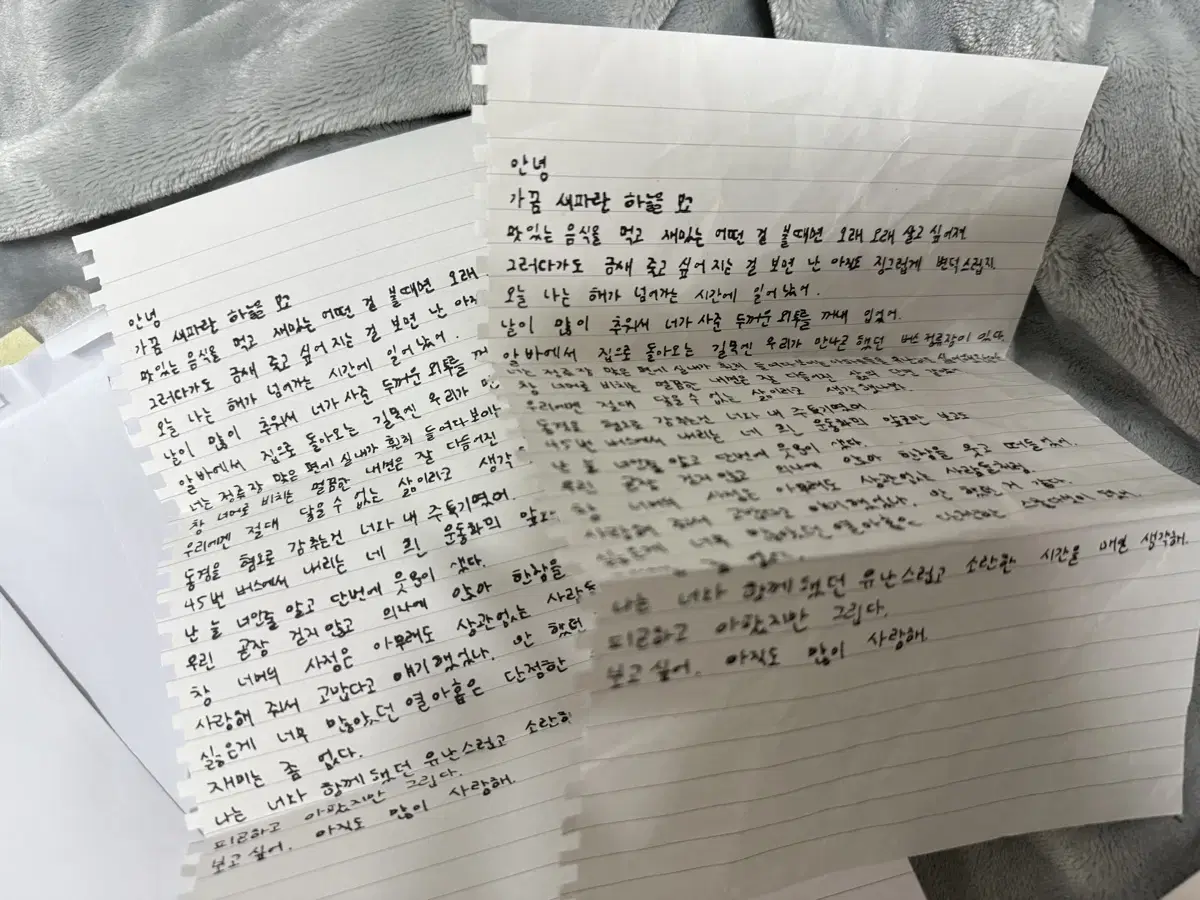 안녕
가끔 새파란 하늘을 보고
맛있는 음식을 먹고 재밌는 어떤 걸 볼때면 오래
그러다가도 금새 죽고 싶어지는 걸 보면 난 아직
오늘 나는 해가 넘어가는 시간에 일어났어.
날이 많이 추워져 너가 사준 두꺼운 외투를 꺼
알바에서 집으로 돌아오는 길목엔 우리가
너는 정류장 맞은 편에 실내가 훤히 들여다보이
창 너머로 비치는 멀끔한 내면은 잘 다듬어진
우리에겐 절대 닿을수 없는 삶이라고 생각
동경을 혐오로 감추는건 너와 내 주특기였어.
45번 버스에서 내리는 네 흰 운동화의 앞코
난 늘 너인줄 알고 단번에 웃음이 샜다.
우린 곧장 걷지않고 의자에 앉아 한참을
창 너머의 사정은 아무래도 상관없는 사람들
사랑해 줘서 고맙다고 얘기했었나. 안 했던
싫은게 너무 많았던 열아홉은 단정한
재미는 좀 없다.
나는 너와 함께했던 유난스럽고 소란한
피곤하고 아팠지만 그립다.
보고싶어. 아직도 많이 사랑해.
안녕
가끔 새파란 하늘을 보고
맛있는 음식을 먹고 재밌는 어떤 걸 볼때면 오래 오래 살고싶어져
그러다가도 금새 죽고 싶어지는 걸 보면 난 아직도 징그럽게 변덕스럽지.
오늘 나는 해가 넘어가는 시간에 일어났어.
날이 많이 추워져 너가 사준 두꺼운 외투를 꺼내 입었어.
알바에서 집으로 돌아오는 길목엔 우리가 만나곤 했던 버스 정류장이 있다.
너는 정류장 맞은 편에 실내가 훤히
창 너머로 비치는 멀끔한 내면은 잘 다듬어진 삶의
우리에겐 절대 닿을수 없는 삶이라고 생각했나봐.
동경을 혐오로 감추는건 너와 내 주특기였어.
45번 버스에서 내리는 네 흰 운동화의 앞코만 보고도
난 늘 너인줄 알고 단번에 웃음이 샜다.
우린 곧장 걷지않고 의자에 앉아 한참을 웃고 떠들었어.
창 너머의 사정은 아무래도 상관없는 사람들처럼.
사랑해 줘서 고맙다고 얘기했었나. 안 했던 거 같다.
싫은게 너무 많았던 열아홉은 단정한
좀 없다.
나는 너와 함께했던 유난스럽고 소란한 시간을 매번 생각해.
피곤하고 아팠지만 그립다.
보고싶어. 아직도 많이 사랑해.